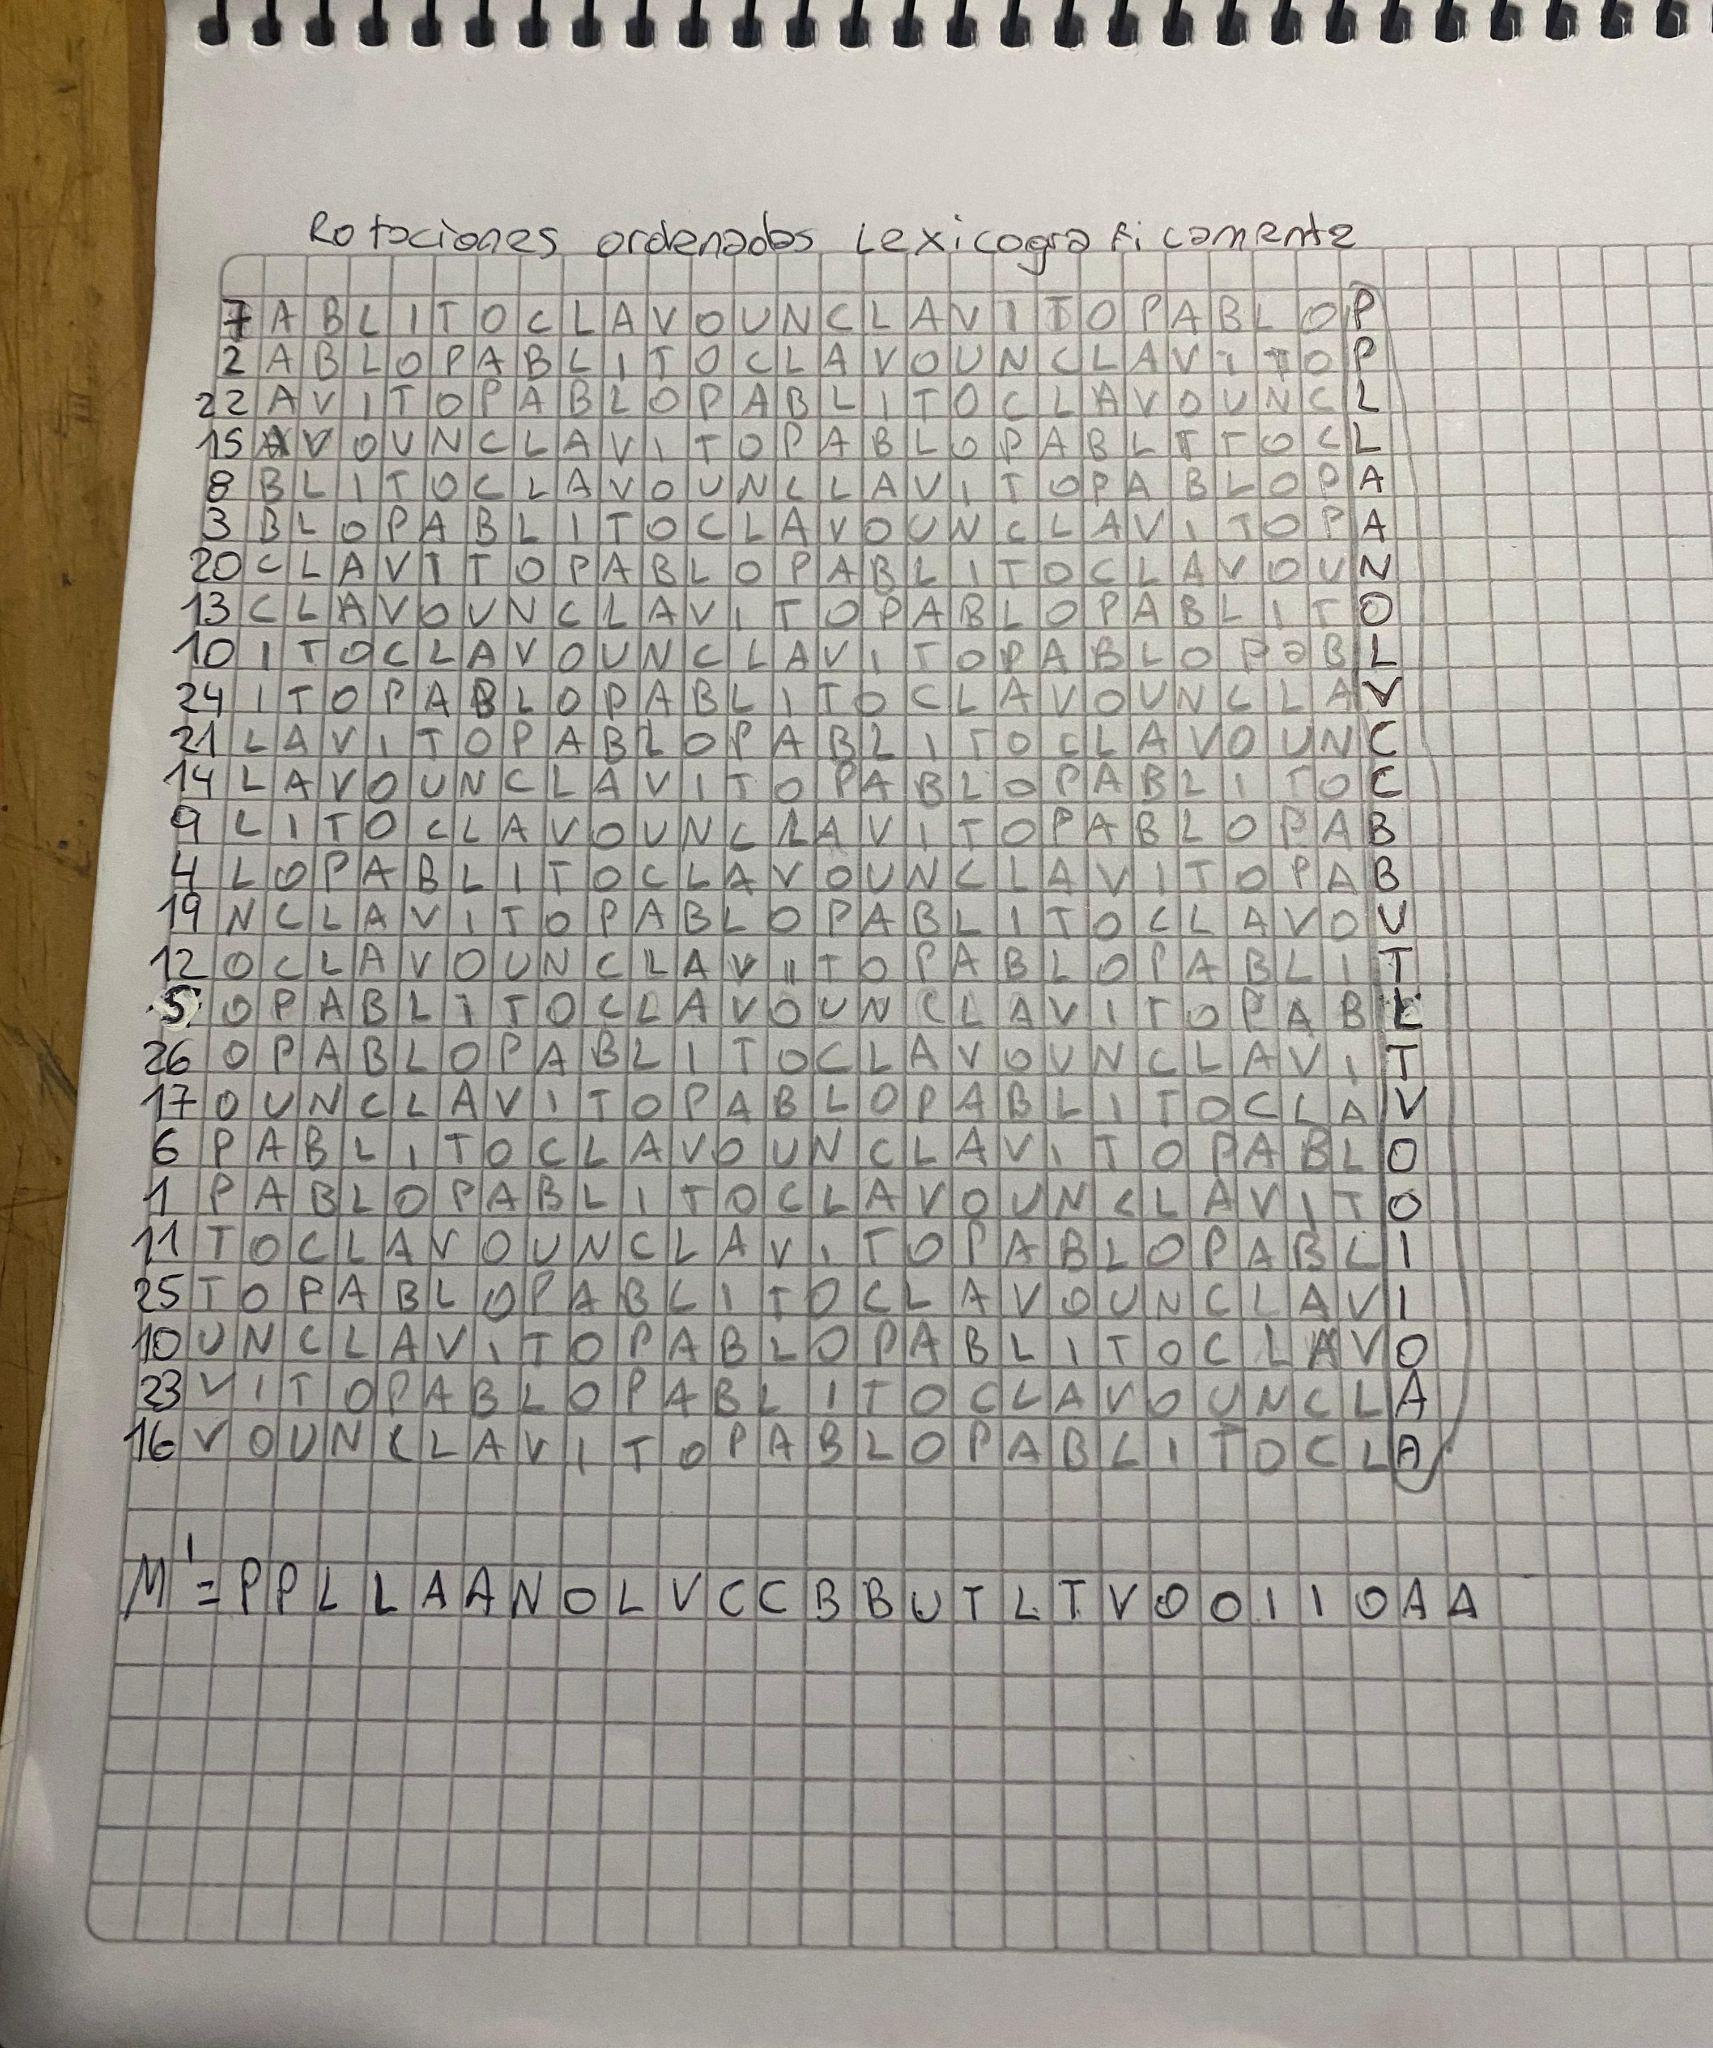 Rotaciones ordenados Lexicograficamente
7 A B L I T O C L A V O U N C L A V I T O P A B L O P
2 A B L O P A B L I T O C L A V O U N C L A V I T O P
22 A V I T O P A B L O P A B L I T O C L A V O U N C L
15 A V O U N C L A V I T O P A B L O P A B L I T O C L
8 B L I T O C L A V O U N C L A V I T O P A B L O P A
3 B L O P A B L I T O C L A V O U N C L A V I T O P A
20 C L A V I T O P A B L O P A B L I T O C L A V O U N
13 C L A V O U N C L A V I T O P A B L O P A B L I T O
10 I T O C L A V O U N C L A V I T O P A B L O P a B L
24 I T O P A B L O P A B L I T O C L A V O U N C L A V
21 L A V I T O P A B L O P A B L I T O C L A V O U N C
14 L A V O U N C L A V I T O P A B L O P A B L I T O C
9 L I T O C L A V O U N C L A V I T O P A B L O P A B
4 L O P A B L I T O C L A V O U N C L A V I T O P A B
19 N C L A V I T O P A B L O P A B L I T O C L A V O U
12 O C L A V O U N C L A V I T O P A B L O P A B L I T
5 O P A B L I T O C L A V O U N C L A V I T O P A B L
26 O P A B L O P A B L I T O C L A V O U N C L A V I T
17 O U N C L A V I T O P A B L O P A B L I T O C L A V
6 P A B L I T O C L A V O U N C L A V I T O P A B L O
1 P A B L O P A B L I T O C L A V O U N C L A V I T O
11 T O C L A V O U N C L A V I T O P A B L O P A B L I
25 T O P A B L O P A B L I T O C L A V O U N C L A V I
10 U N C L A V I T O P A B L O P A B L I T O C L A V O
23 V I T O P A B L O P A B L I T O C L A V O U N C L A
16 V O U N C L A V I T O P A B L O P A B L I T O C L A
M' = P P L L A A N O L V C C B B U T L T V O O I I O A A